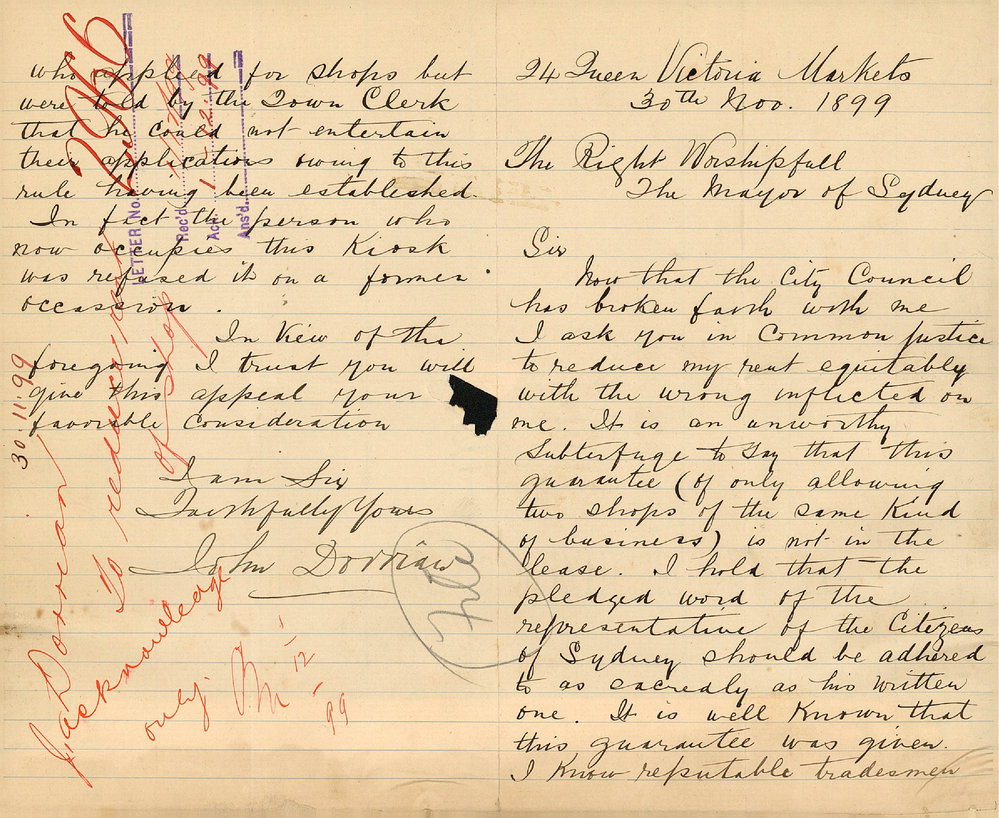 24 Queen Victoria Markets
30th Nov. 1899
The Right Worshipfull
The Mayor of Sydney
Sir
Now that the City Council
has broken faith with me
I ask you in Common Justice
to reduce my rent equitably
with the wrong inflicted on
me. It is an unworthy
Subterfuge to Say that this
guarantee (of only allowing
two shops of the same Kind
of business) is not in the
lease. I hold that the
pledged word of the
representative of the Citizens
of Sydney should be adhered
to as sacredly as his written
one. It is well Known that
this guarantee was given.
I Know reputable tradesmen
who applied for shops but
were told by the Town Clerk
that he could not entertain
their applications owing to this
rule having been established.
In fact the person who
now occupies this Kiosk
was refused it on a former
occassion.
In View of the
foregoing I trust you will
give this appeal your
favorible consideration
I am Sir
Faithfully Yours
John Dorrian
File
LETTER No.
Rec'd
Ack. 1-12-99
Ans'd
30.11.99
J. Dorrian
To reduce rent
of shop
Acknowledge
only.
1/12/99